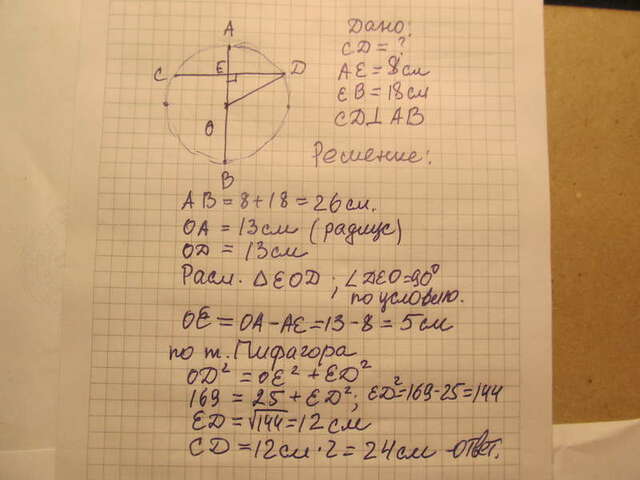 A
C E D
O
B
Дано:
CD = ?
AE = 8см
EB = 18см
CD⊥AB
Решение:
AB = 8+18 = 26см.
OA = 13см (радиус)
OD = 13см
Расм. △EOD ; ∠DEO=90°
по условию.
OE = OA-AE=13-8 = 5см
по т. Пифагора
OD² = OE² + ED²
169 = 25 + ED²; ED²=169-25=144
ED = √144 = 12см
CD = 12см·2 = 24см ответ.